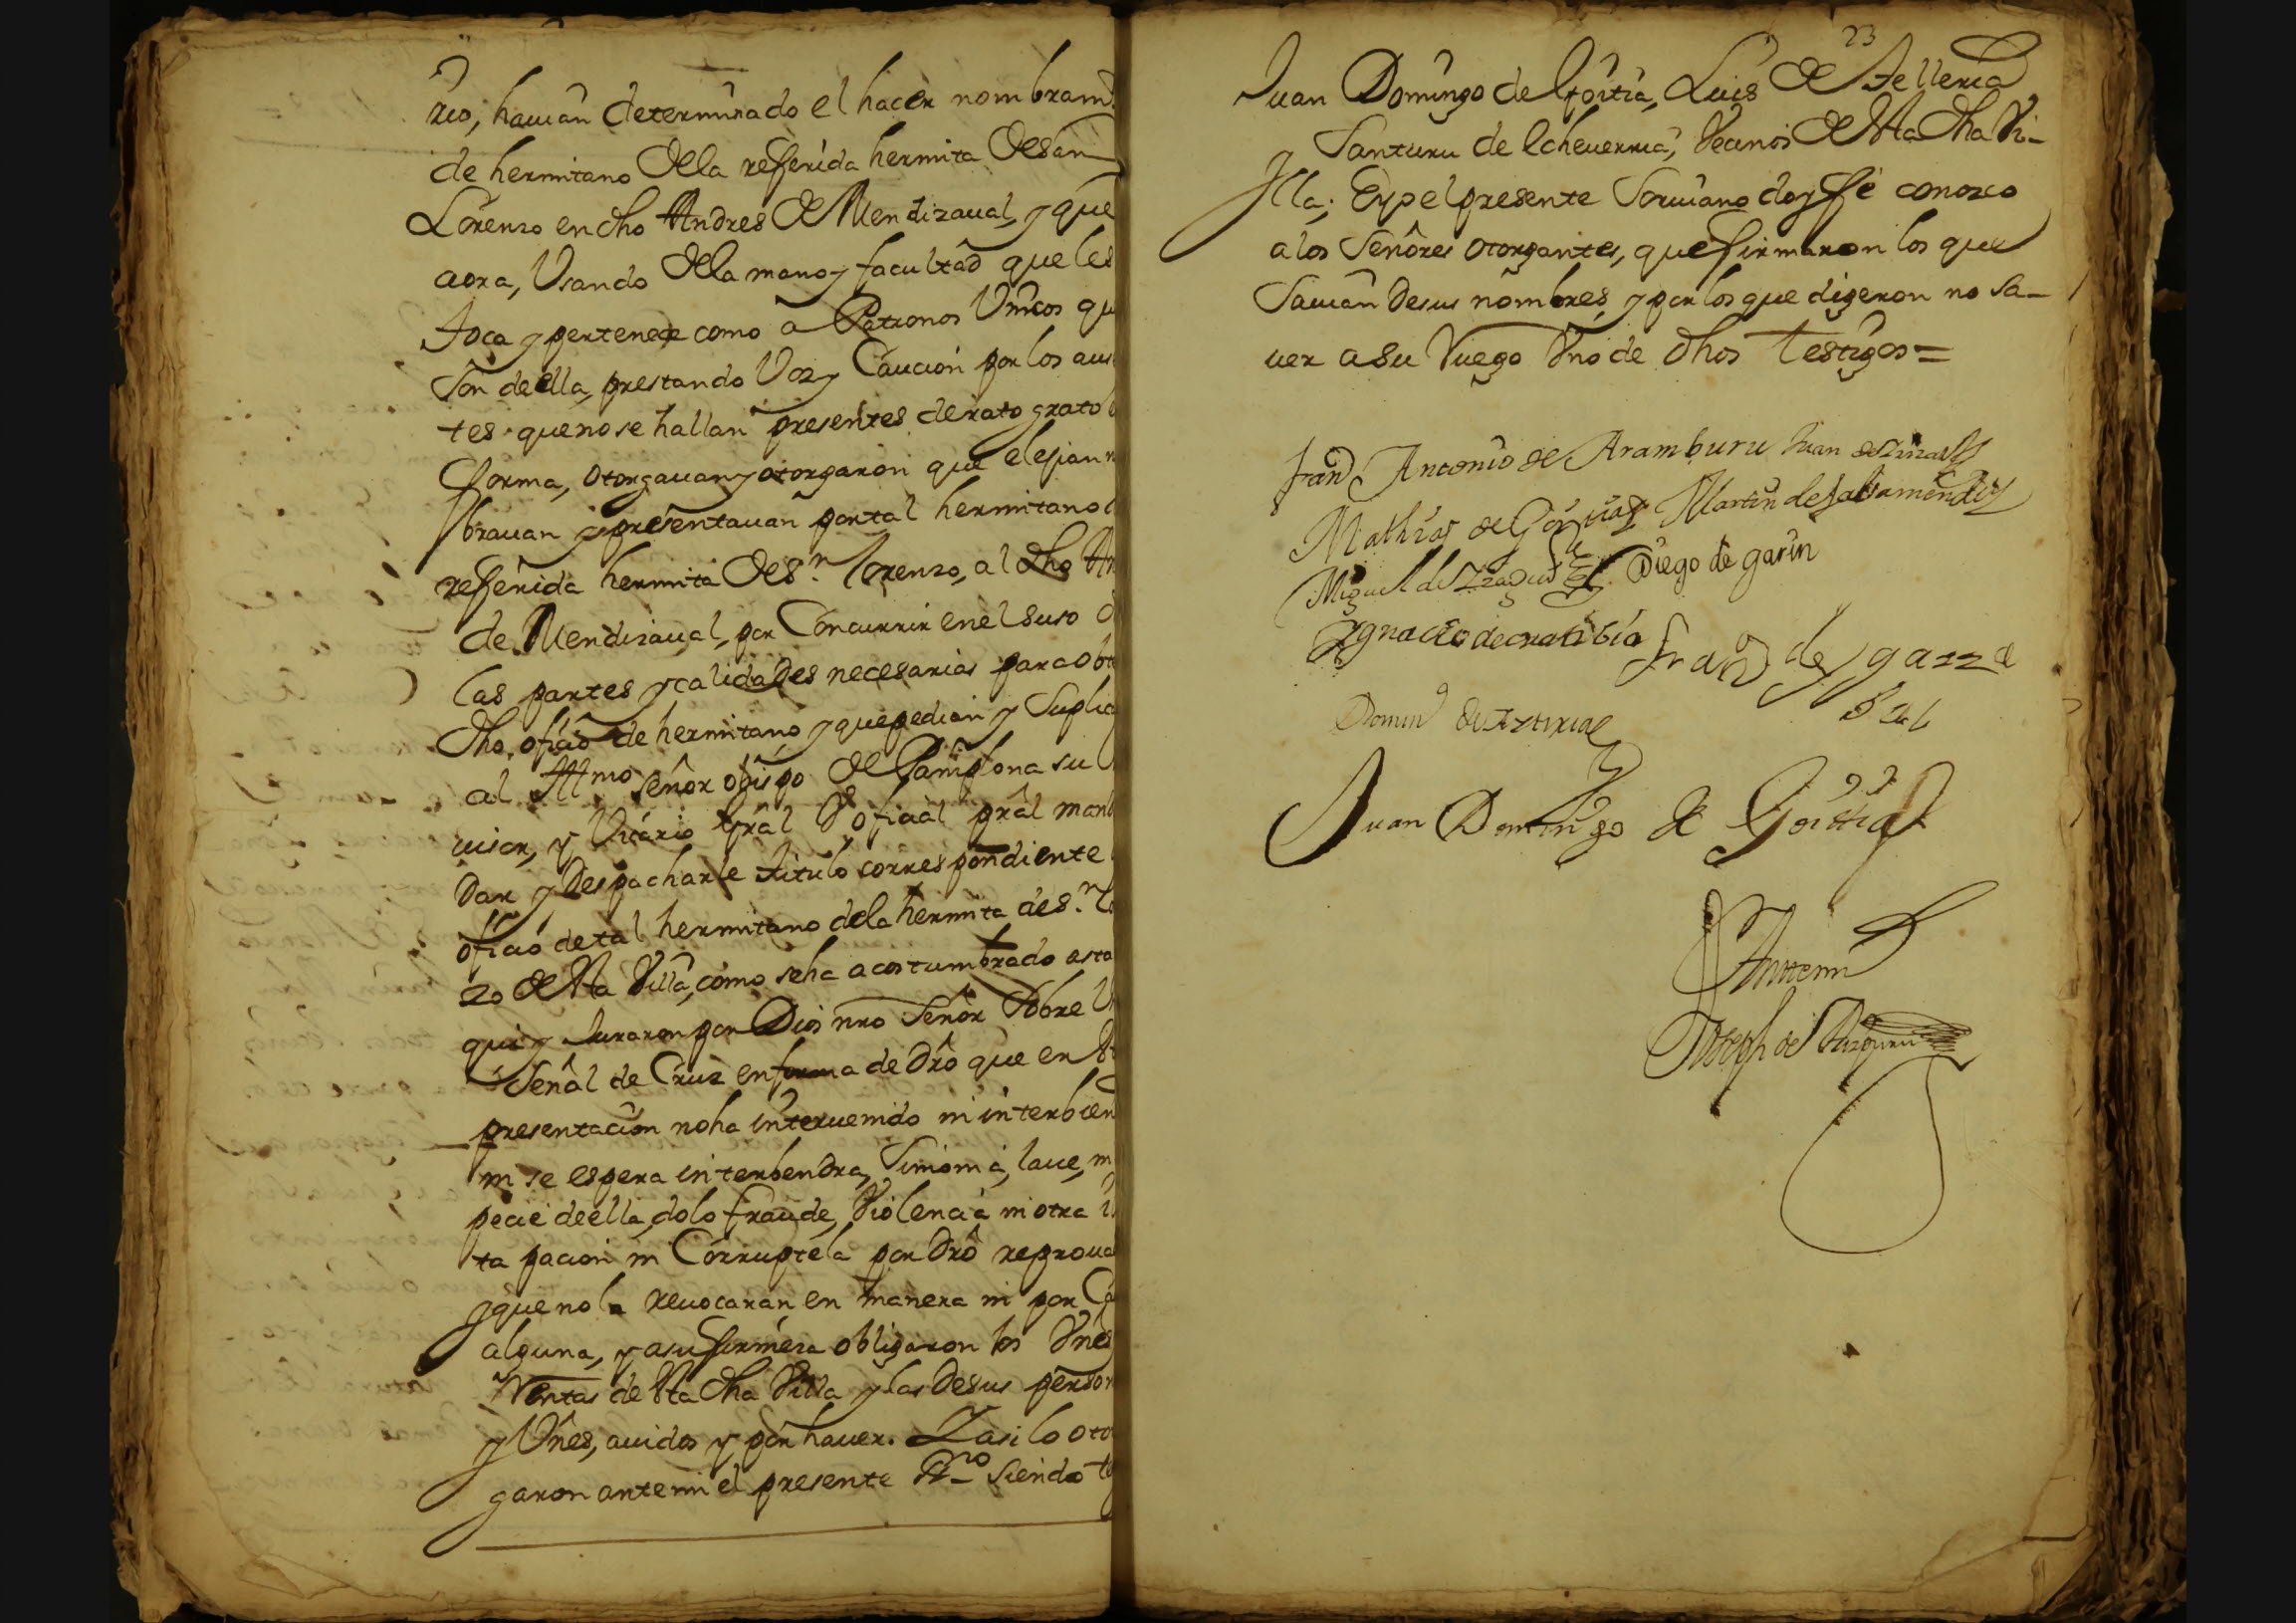 rio, hauian determinado el hacer nombram
de hermitano de la referida hermita de San
Lorenzo en dho Andres de Mendizaual, y que
aora, Vsando de la mano y facultad que les
toca y pertenece como a Patronos Vnicos qu
son de ella, prestando Voz y Caucion por los aus
tes que no se hallan presentes de rato grato
forma, otorgauan y otorgaron que elejian n
brauan y presentauan por tal hermitano
referida hermita de Sn. Lorenzo, al dho An
de Mendizaual, por Concurrir en el suso
las partes y calidades necesarias para obt
dho. oficio de hermitano y que pedian y Suplic
al Illmo Señor obispo de Pamplona su
uisor, y Vicario gral y oficial pral mand
dar y Despacharle titulo correspondiente
oficio de tal hermitano de la hermita de Sn. Lo
zo de sta Villa, como se ha acostumbrado asta
qui y Juraron por Dios nro Señor Sobre V
Señal de Cruz en forma de dro que en st
presentacion no ha interuenido ni interbien
ni se espera interbendra, Simonia, laue, ni
pecie de ella, dolo fraude, Violencia ni otra i
ta pacion ni Corruptela por dro reproua
y que no la reuocaran en manera ni por C
alguna, y a su firmeza obligaron los Vnes
Rentas de sta dha Villa y las de sus person
y Vnes, auidos y por hauer. Y asi lo otor
garon ante mi el presente Ssno Siendo te
23
Juan Domingo de Goitia, Luis de Telleria
Santuru de Echeuerria, Vecinos de sta dha Vi-
lla; E yo el presente Scriuano doy fe conozco
a los Señores otorgantes, que firmaron los que
Sauian de sus nombres, y por los que digeron no sa-
uer a su Ruego Vno de dhos testigos =
Franco Antonio de Aramburu Juan de
Mathias de Martin de Jalsamendi
Miguel de Diego de garin
Ygnacio de oratibia Franco de ygarza
Domin de Azttiria
Juan Domingo de Goittia
Antemi
Joseph de